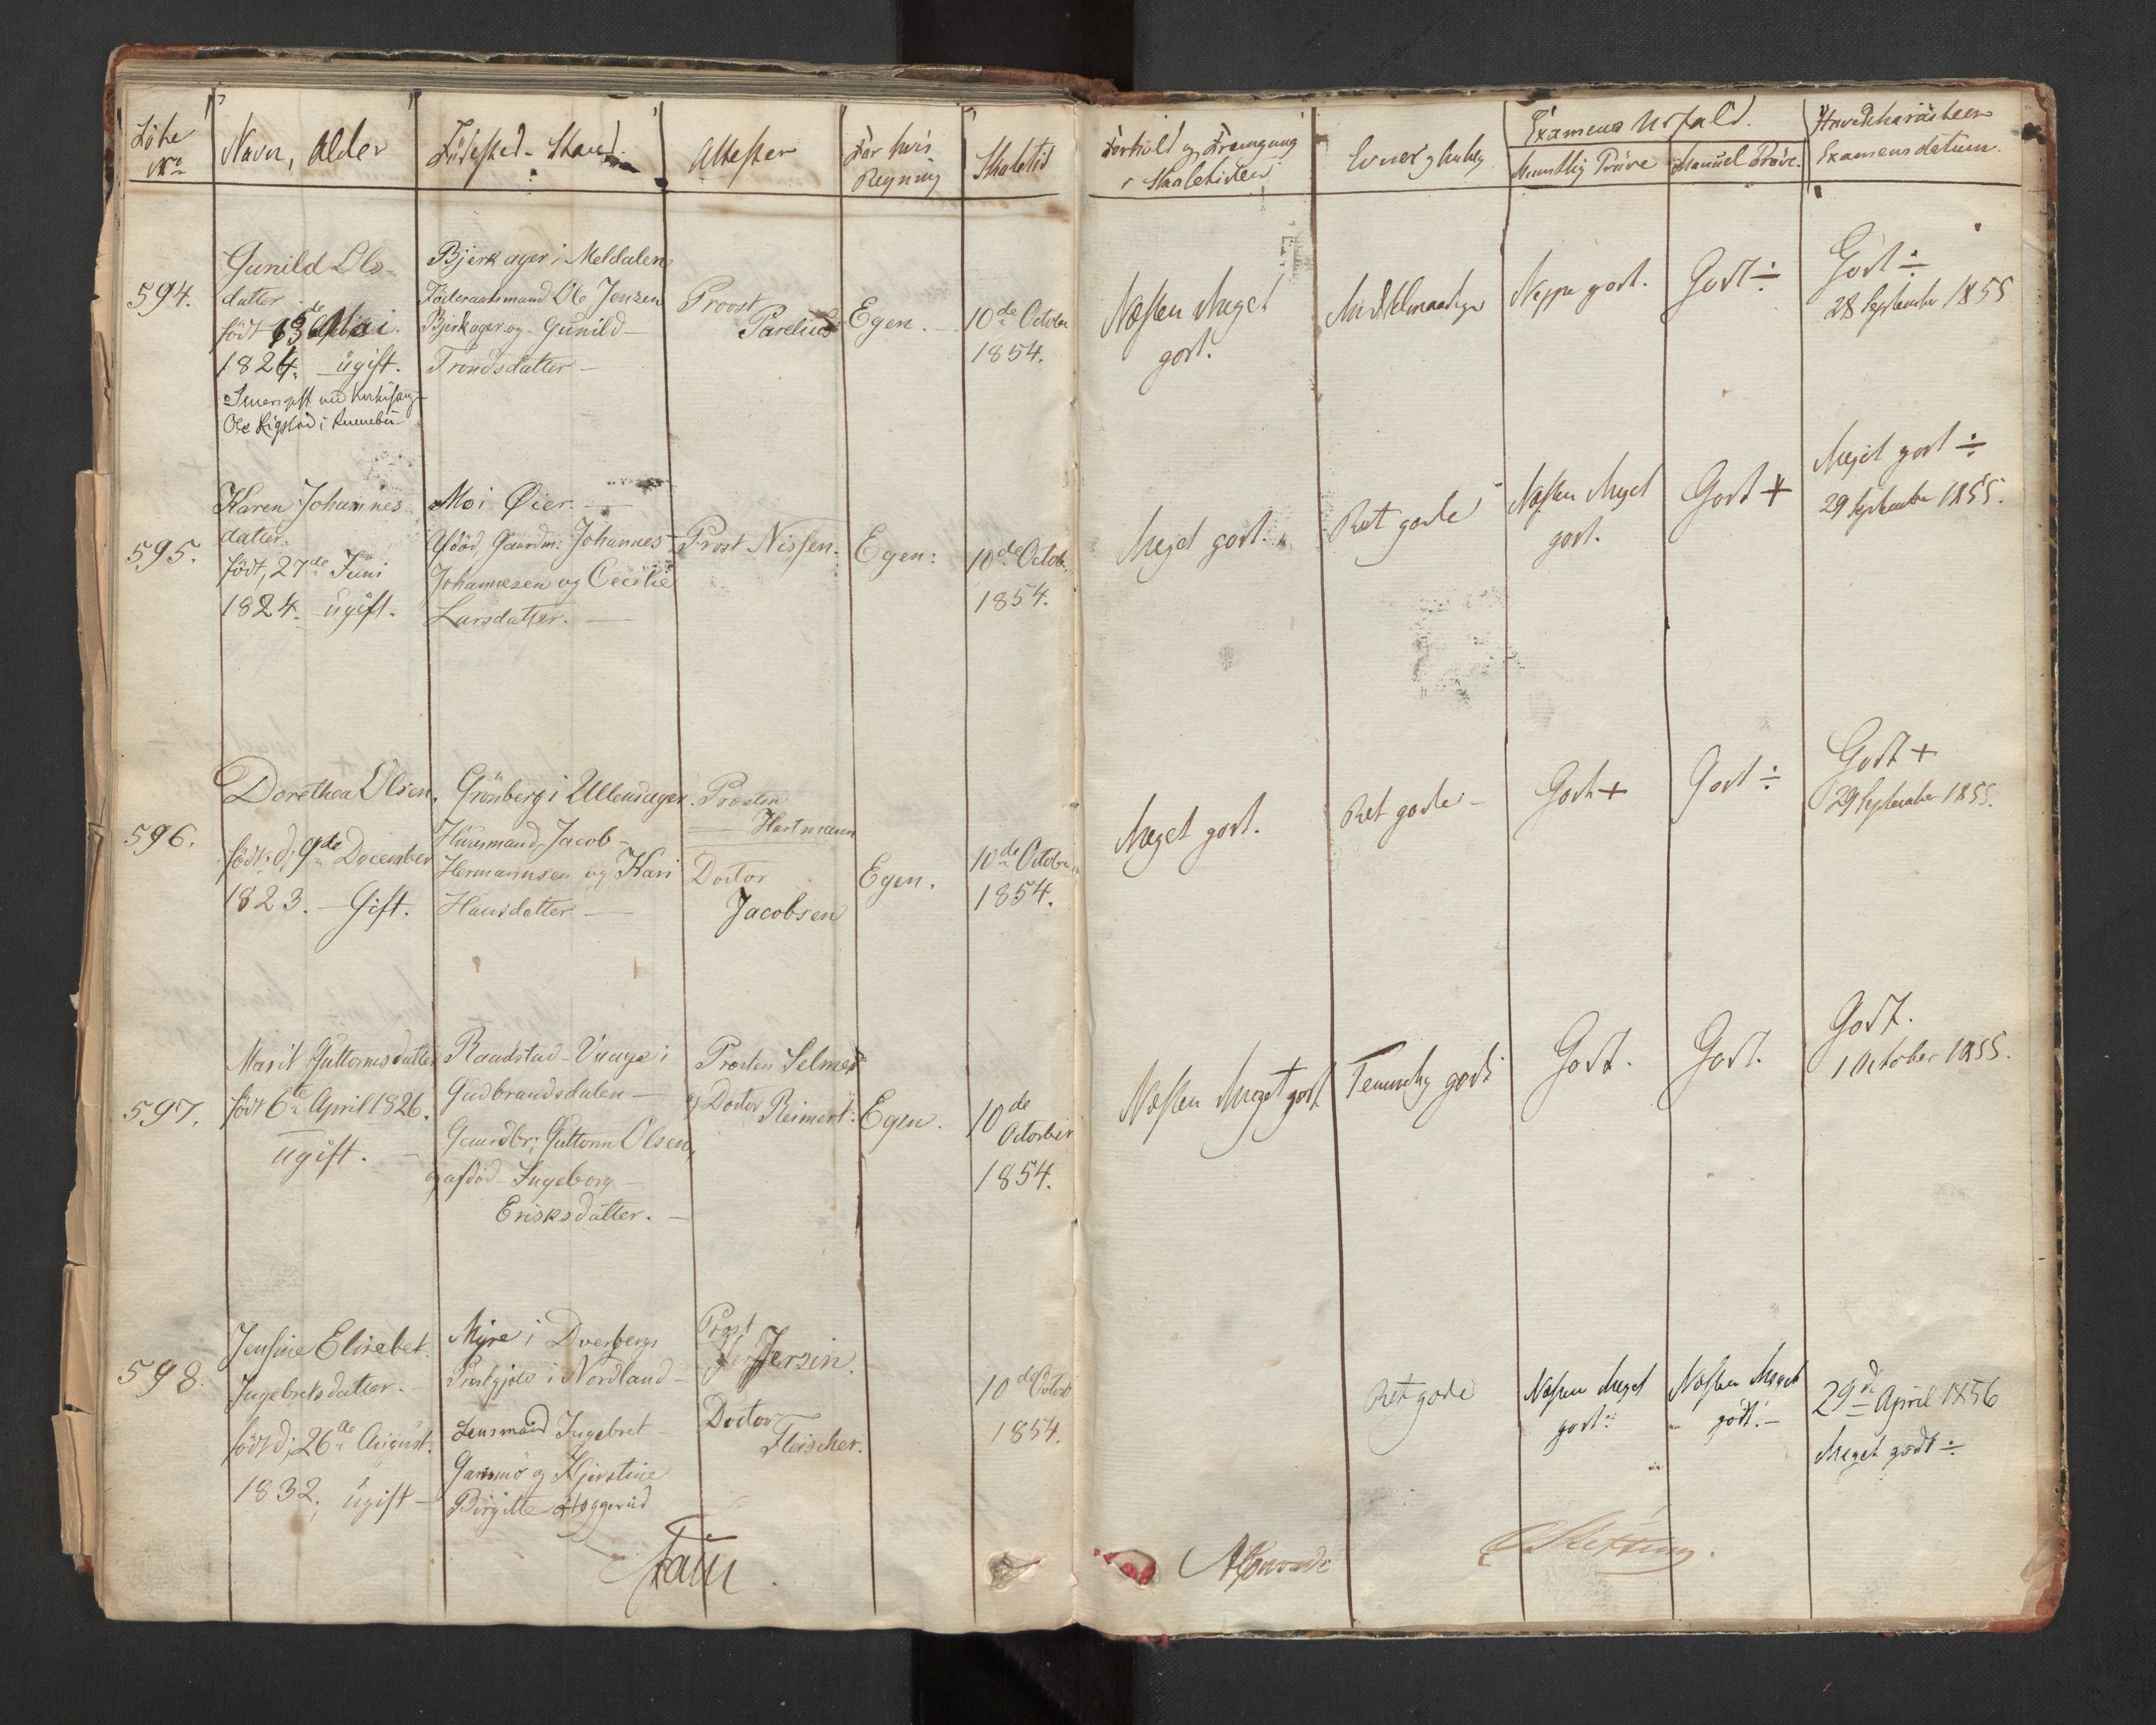 Löbe No
Navn, Alder
Födested - Stand.
Attester
For hvis Regning
Skoletid
Forhold og Fremgang i Skoletiden
Evner og
Examens Udfald.
Mundtlig Pröve
Manuel Pröve.
Hovedcharacteer
Examensdatum.
594.
Gunild Ols-
datter
födt 13de Mai
1824. ugift.
Ole Rigstad i Rennebu
Bjerkager i Meldalen
Föderaadsmand Ole Jensen
Bjerkager og Gunild
Trondsdatter
Provst
Parelius
Egen.
10de Octobr
1854.
Næsten Meget
godt.
Middelmaadige
Neppe godt.
Godt ÷
Godt ÷
28 September 1855
595.
Karen Johannes
datter.
födt, 27de Juni
1824. ugift.
Mo i Öier.
Afdöd Gaardm: Johannes
Johannesen og Cecilie
Larsdatter.
Prost Nissen.
Egen:
10de Octob.
1854.
Meget godt.
Ret gode
Næsten Meget
godt.
Godt +
Meget godt ÷
29 September 1855.
596.
Dorethea Olsen.
födt, d; 9de December
1823. - Gift.
Grönberg i Ullensager.
Huusmand Jacob
Hermannsen og Kari
Hansdatter
Prosten
Hartmann
Doctor
Jacobsen
Egen.
10de Octobr
1854.
Meget godt.
Ret gode
Godt +
Godt ÷
Godt +
29 September 1855.
597.
Marit Guttormsdatter
födt 6te April 1826.
ugift.
Raadstad - Vaage i
Gudbrandsdalen
Gaardbr; Guttorm Olsen,
og afdöd Ingeborg
Erisksdatter.
Prosten Selmer
og Doctor Reimert.
Egen.
10de
October
1854.
Næsten Meget godt
Temmelig gode
Godt.
Godt.
Godt.
1 October 1855.
598.
Jensine Elisabet
Ingebretsdatter.
födt d; 26de August.
1832; ugift
Myre i Dverberg
Prestgjeld i Nordland
Lensmand Ingebret
og Kjerstine
Birgitte Hoggerud
Prost
Jersin.
Doctor
Fleischer.
10de Octob
1854.
Ret gode
Næsten Meget
godt.
Næsten Meget
godt.
29de April 1856
Meget godt ÷
Faye